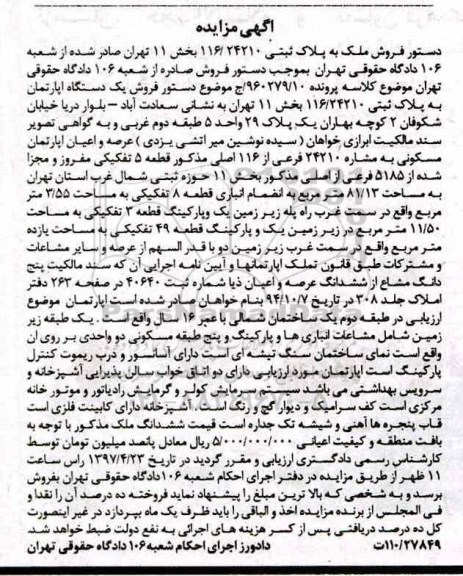 آگهی مزایده
دستور فروش ملک به پلاک ثبتی ۱۱۶/۲۴۲۱۰ بخش ۱۱ تهران صادر شده از شعبه
۱۰۶ دادگاه حقوقی تهران بموجب دستور فروش صادره از شعبه ۱۰۶ دادگاه حقوقی
تهران موضوع کلاسه پرونده ۹۶۰۲۷۹/۱۰/ج موضوع دستور فروش یک دستگاه اپارتمان
به پلاک ثبتی ۱۱۶/۲۴۲۱۰ بخش ۱۱ تهران به نشانی سعادت آباد – بلوار دریا خیابان
شکوفان ۲ کوچه بهاران پلاک ۲۹ واحد ۵ طبقه دوم غربی و به گواهی تصویر
سند مالکیت ابرازی خواهان ( سیده نوشین میر اتشی یزدی ) عرصه و اعیان اپارتمان
مسکونی به مشاره ۲۴۲۱۰ فرعی از ۱۱۶ اصلی مذکور قطعه ۵ تفکیکی مفروز و مجزا
شده از ۵۱۸۵ فرعی از اصلی مذکور بخش ۱۱ حوزه ثبتی شمال غرب استان تهران
به مساحت ۸۱/۱۳ متر مربع به انضمام انباری قطعه ۸ تفکیکی به مساحت ۳/۵۵ متر
مربع واقع در سمت غرب راه پله زیر زمین یک وپارکینگ قطعه ۳ تفکیکی به مساحت
۱۱/۵۰ متر مربع در زیر زمین یک و پارکینگ قطعه ۴۹ تفکیکی به مساحت یازده
متر مربع واقع در سمت غرب زیر زمین دو با قدر السهم از عرصه و سایر مشاعات
و مشترکات طبق قانون تملک اپارتمانها و آیین نامه اجرایی آن که سند مالکیت پنج
دانگ مشاع از ششدانگ عرصه و اعیان ذیل شماره ثبت ۴۰۶۴۰ در صفحه ۲۶۳ دفتر
املاک جلد ۳۰۸ در تاریخ ۹۴/۱۰/۷ بنام خواهان صادر شده است اپارتمان موضوع
ارزیابی در طبقه دوم یک ساختمان شمالی با عمر ۱۶ سال واقع است . یک طبقه زیر
زمین شامل مشاعات انباری ها و پارکینگ و پنج طبقه مسکونی دو واحدی بر روی ان
واقع است نمای ساختمان سنگ تیشه ای است دارای آسانسور و درب ریموت کنترل
پارکینگ است اپارتمان مورد ارزیابی دارای دو اتاق خواب سالن پذیرایی آشپزخانه و
سرویس بهداشتی می باشد سیستم سرمایش کولر و گرمایش رادیاتور و موتور خانه
مرکزی است کف سرامیک و دیوار گچ و رنگ است . اشپزخانه دارای کابینت فلزی است
قاب پنجره ها آهنی و شیشه تک جداره است قیمت ششدانگ ملک مذکور با توجه به
بافت منطقه و کیفیت اعیانی ۵/۰۰۰/۰۰۰/۰۰۰ ریال معادل پانصد میلیون تومان توسط
کارشناس رسمی دادگستری ارزیابی و مقرر گردید در تاریخ ۱۳۹۷/۴/۲۳ راس ساعت
۱۱ ظهر از طریق مزایده در دفتر اجرای احکام شعبه ۱۰۶دادگاه حقوقی تهران بفروش
برسد و به شخصی که بالا ترین مبلغ را پیشنهاد نماید فروخته ده درصد آن را نقدا و
فی المجلس از برنده مزایده اخذ و الباقی را باید ظرف یک ماه بپردازد در غیر اینصورت
کل ده درصد دریافتی پس از کسر هزینه های اجرائی به نفع دولت ضبط خواهد شد.
۱۱۰/۲۷۸۴۹ت دادورز اجرای احکام شعبه۱۰۶ دادگاه حقوقی تهران